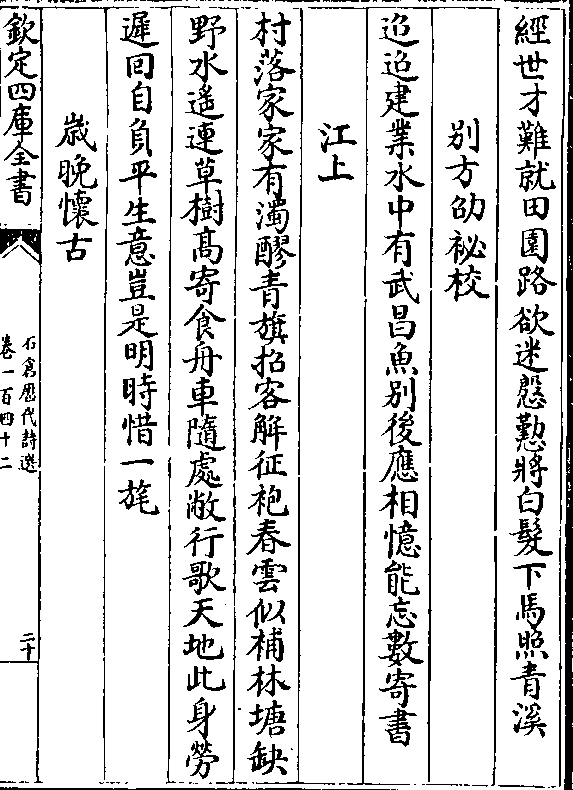 經世才難就田園路欲迷慇懃將白髮下馬照青溪
别方劭祕校
迢迢建業水中有武昌魚别後應相憶能忘數寄書
江上
村落家家有濁醪青旗招客解征袍春雲似補林塘缺
野水遥連草樹髙寄食舟車隨處敝行歌天地此身勞
遲回自負平生意豈是明時惜一旄
歳晚懷古
欽定四庫全書
石倉歴代詩選
卷一百四十二
二十